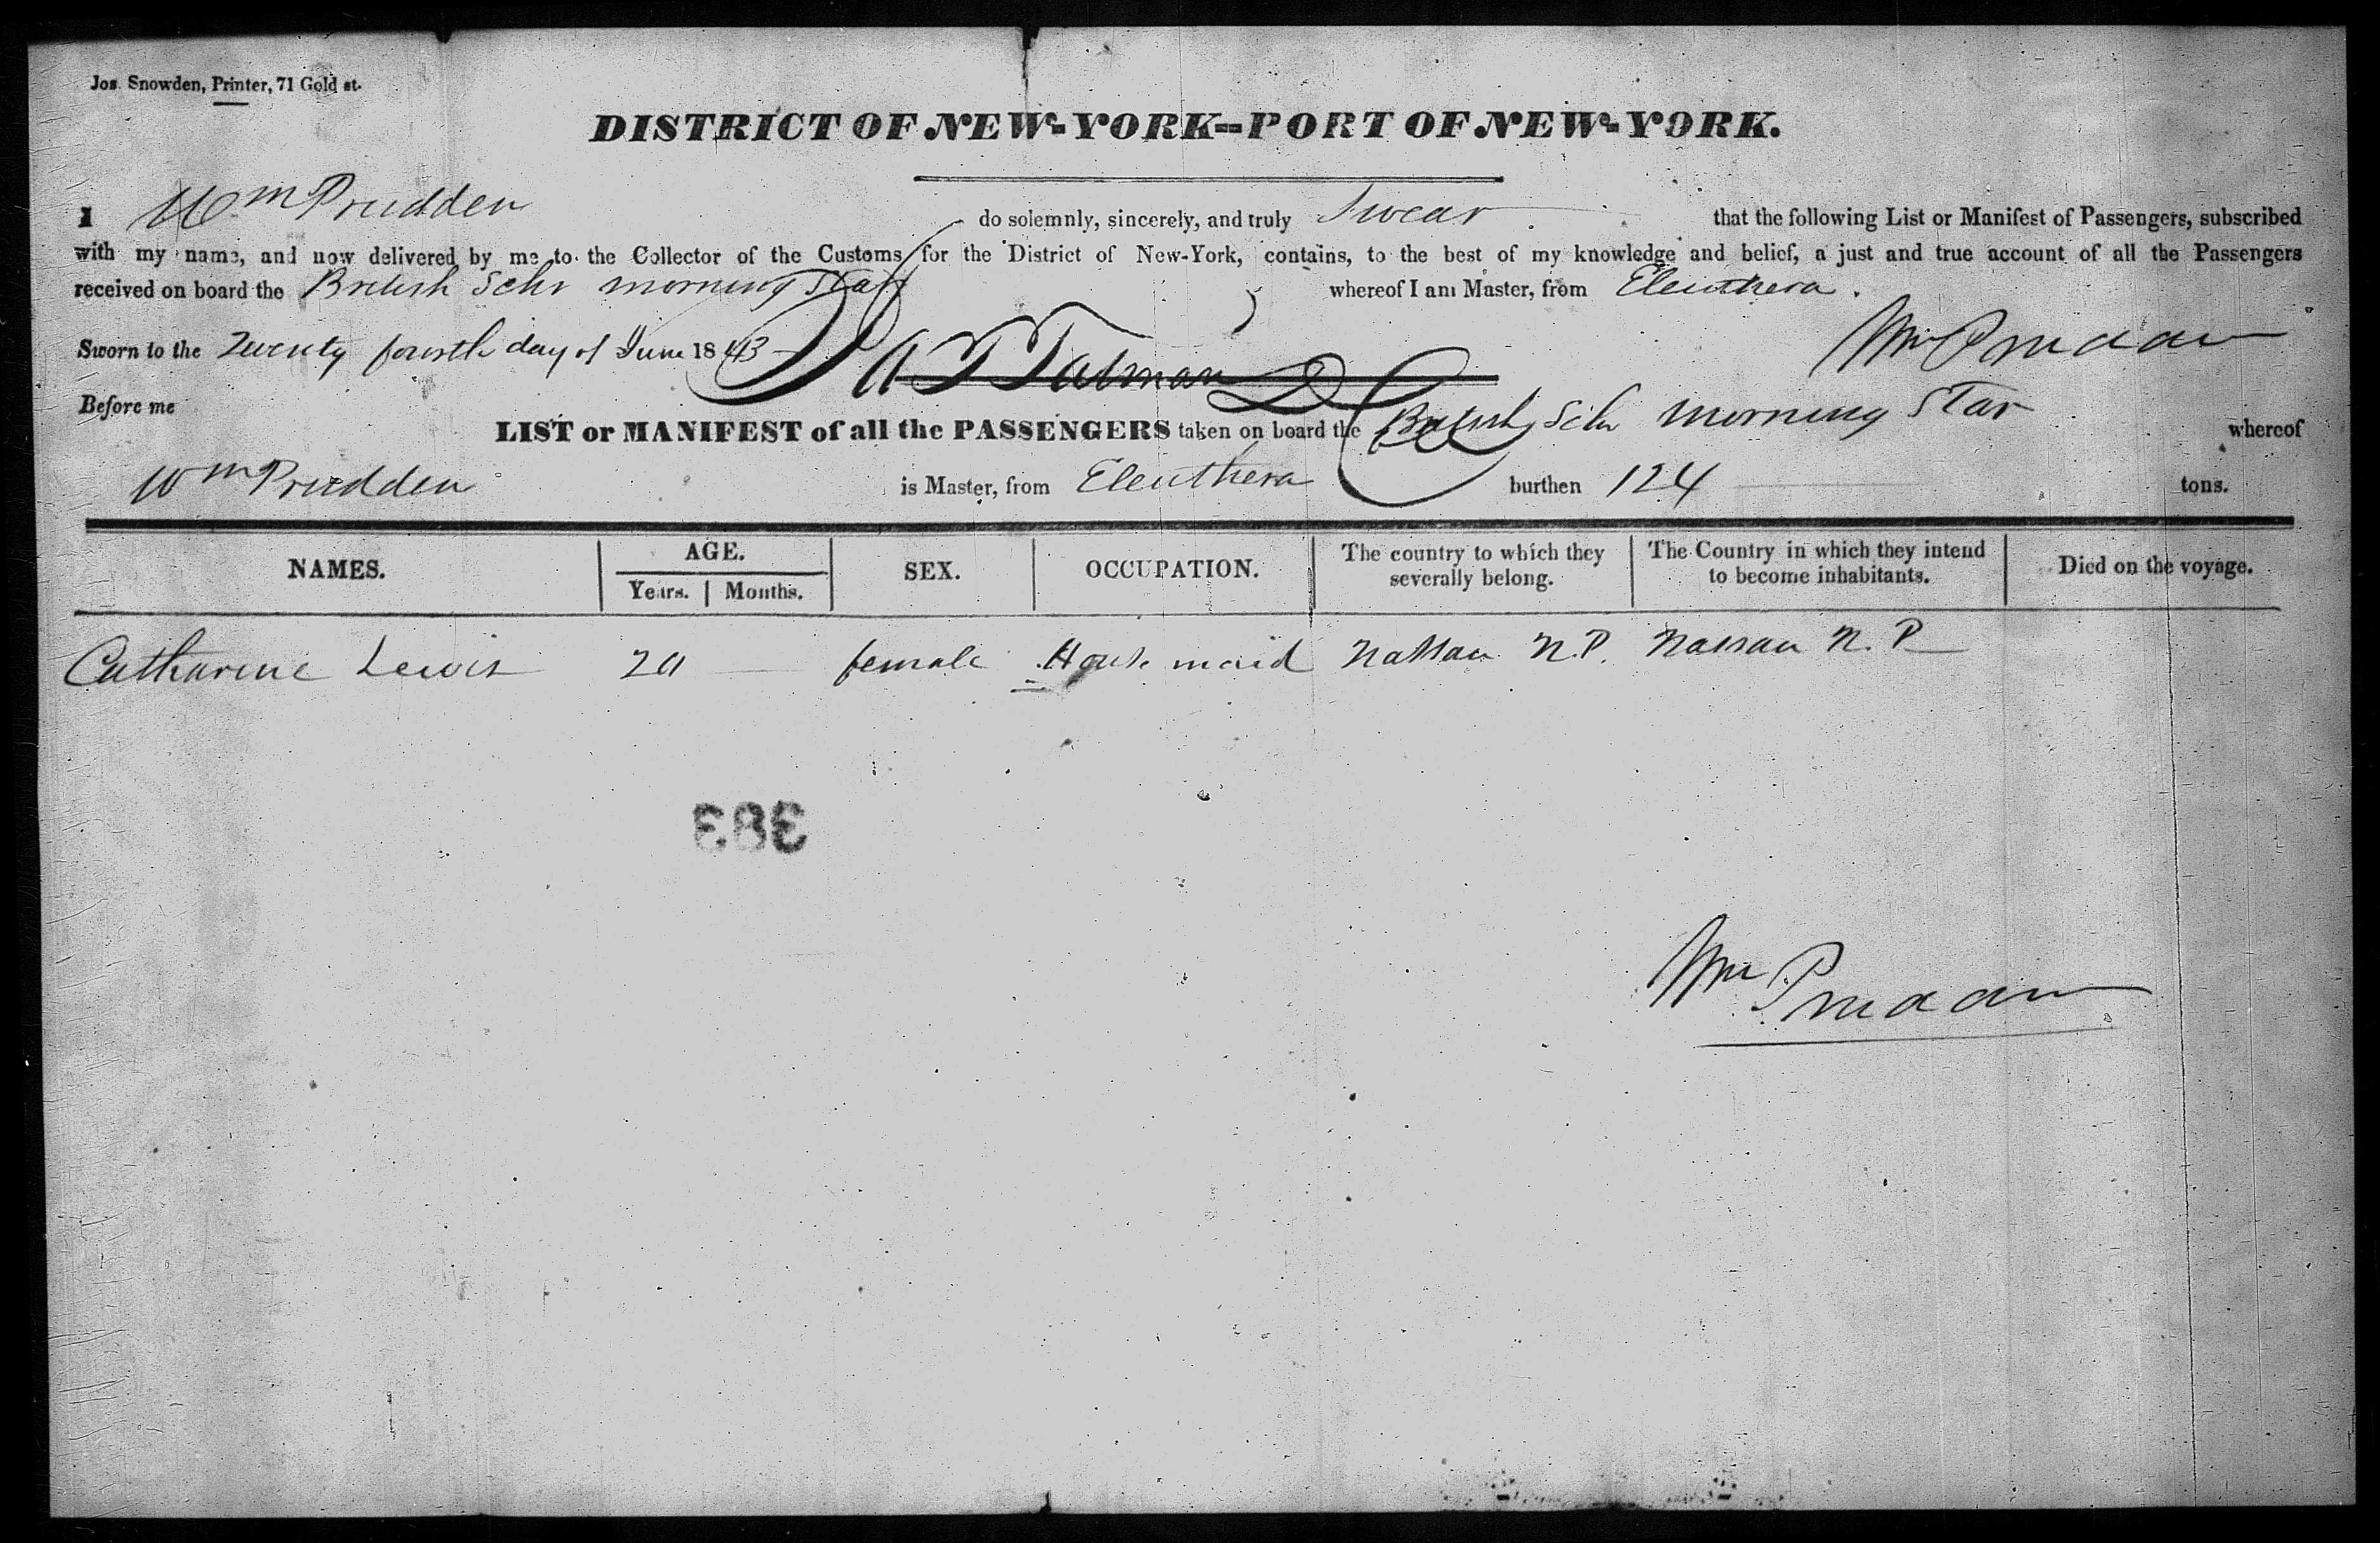 Jos. Snowden, Printer, 71 Gold st.
DISTRICT OF NEW-YORK--PORT OF NEW-YORK.
I Wm Prudden do solemnly, sincerely, and truly Swear that the following List or Manifest of Passengers, subscribed
with my name, and now delivered by me to the Collector of the Customs for the District of New-York, contains, to the best of my knowledge and belief, a just and true account of all the Passengers
received on board the British Schr morning Star whereof I am Master, from Eleuthera.
Wm Prudden
Sworn to the Twenty fourth day of June 1843
Before me
LIST or MANIFEST of all the PASSENGERS taken on board the British Schr morning Star whereof
Wm Prudden is Master, from Eleuthera burthen 124 tons.
NAMES. AGE. Years. Months. SEX. OCCUPATION. The country to which they severally belong. The Country in which they intend to become inhabitants. Died on the voyage.
Catharine Lewis 20 — female House maid Nassau N.P. Nassau N.P
383
Wm Prudden